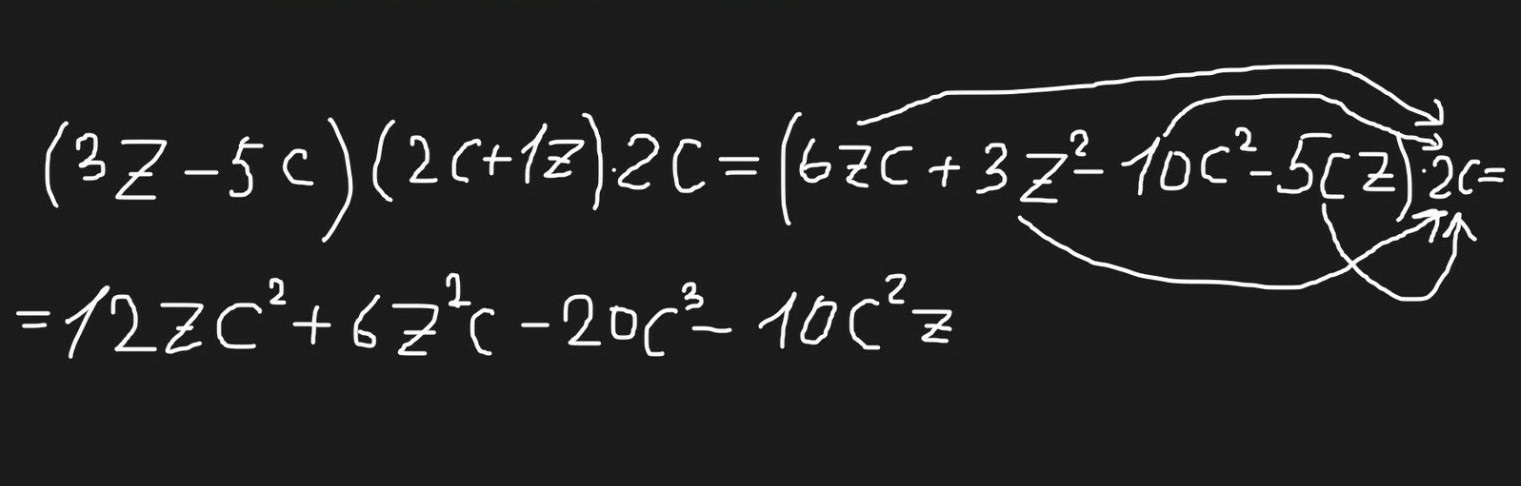 (3z-5c)(2c+1z)·2c=(6zc+3z²-10c²-5cz)·2c=
=12zc²+6z²c-20c³-10c²z